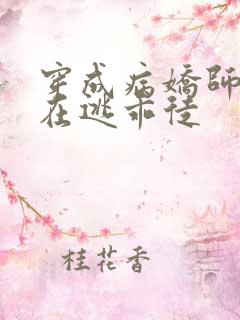 穿成病嬌師
在逃乖徒
桂花香